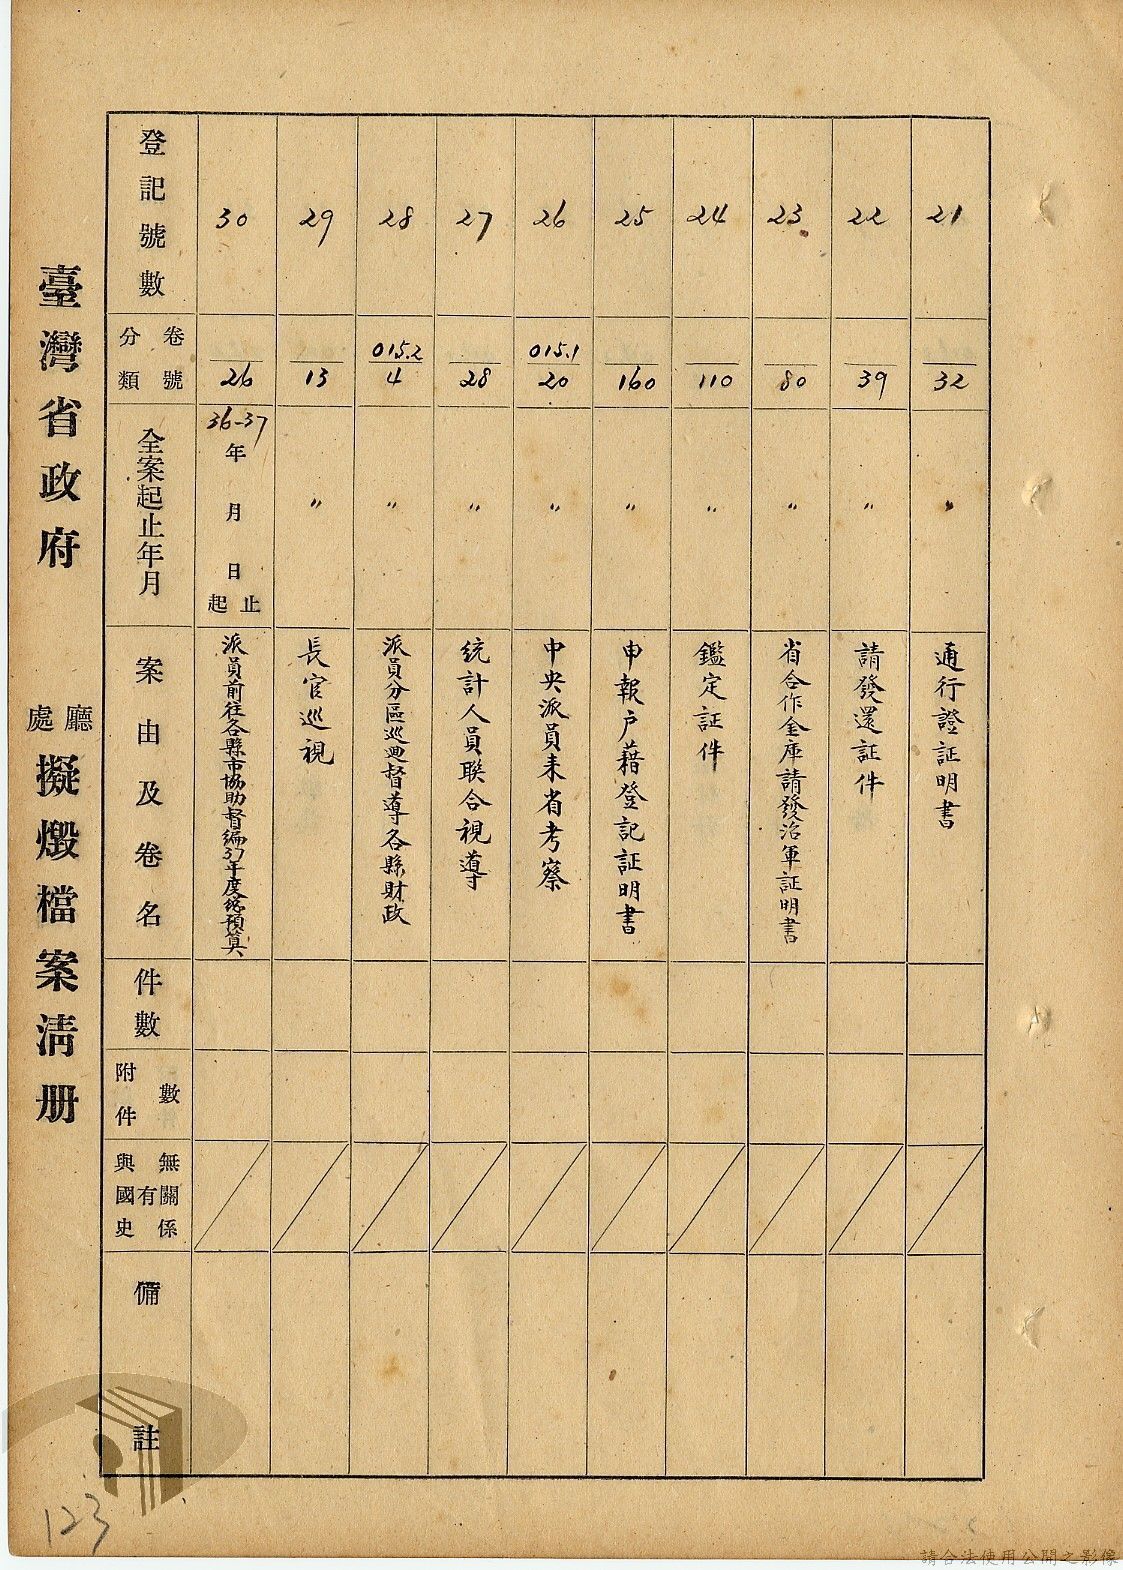 臺灣省政府 廳處 擬燬檔案清册
登記號數
分類 卷號
全案起止年月
案由及卷名
件數
附件 數
與國史有無關係
備註
21
32
〃
通行證証明書
22
39
〃
請發還証件
23
80
〃
省合作金庫請發治軍証明書
24
110
〃
鑑定証件
25
160
〃
申報戶藉登記証明書
26
015.1
20
〃
中央派員来省考察
27
28
〃
統計人員聯合視導
28
015.2
4
〃
派員分區巡廻督導各縣財政
29
13
〃
長官巡視
30
26
36-37
年 月 日 起止
派員前往各縣市協助督編37年度總預算
123
請合法使用公開之影像